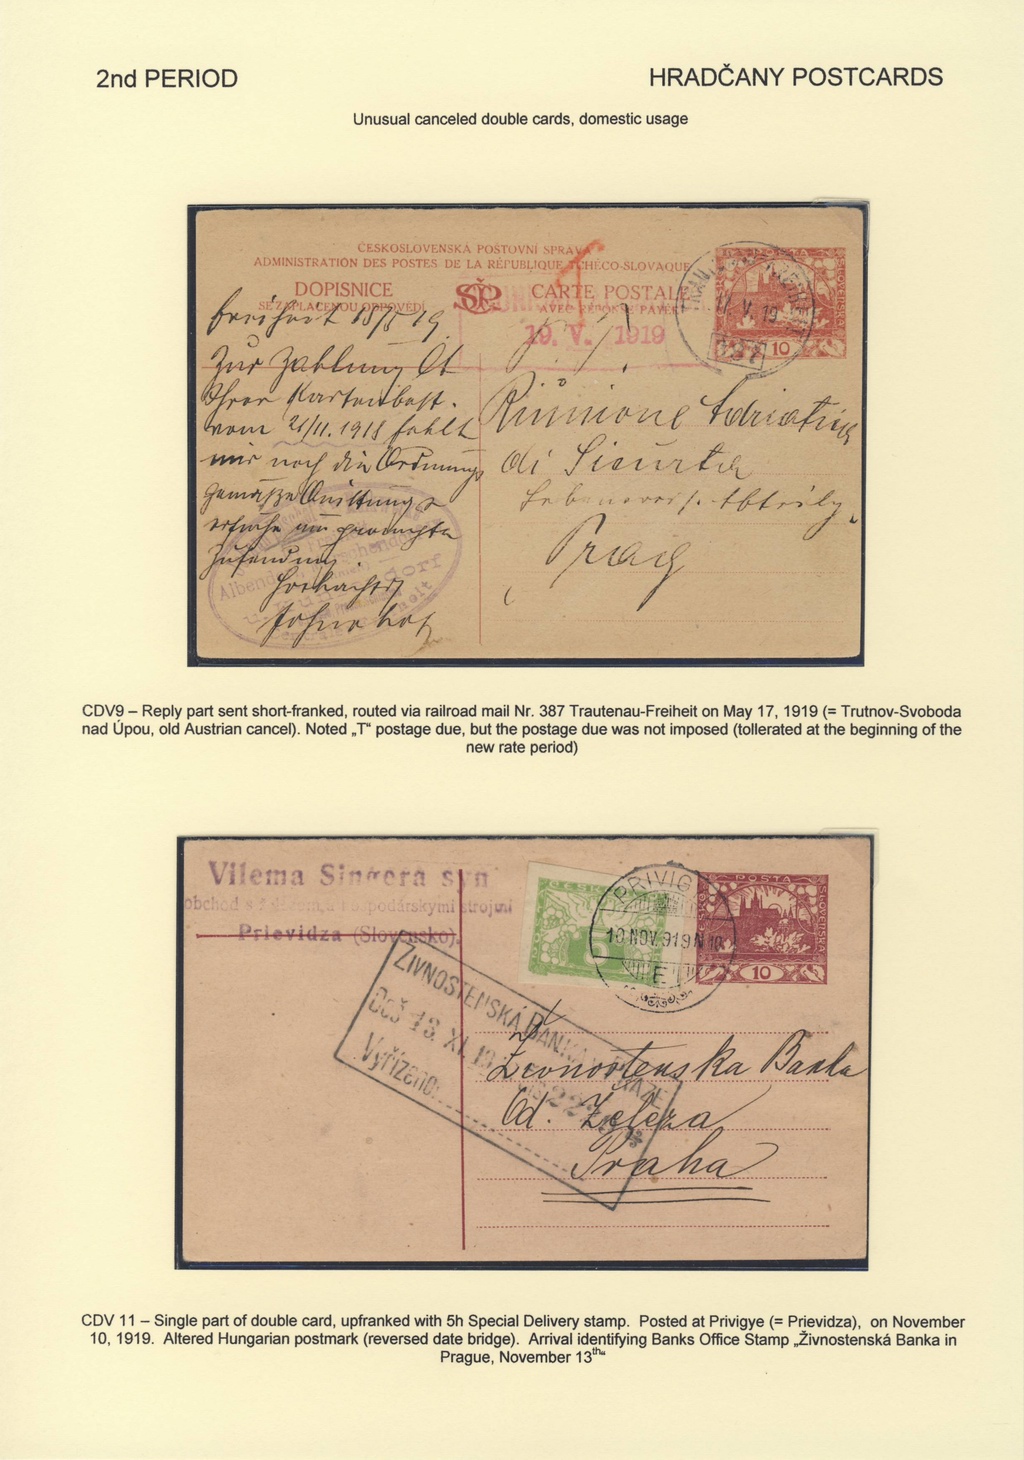 2nd PERIOD
HRADČANY POSTCARDS
Unusual canceled double cards, domestic usage
ČESKOSLOVENSKÁ POŠTOVNÍ SPRÁVA
ADMINISTRATION DES POSTES DE LA RÉPUBLIQUE TCHÉCO-SLOVAQUE
DOPISNICE
SE ZAPLACENOU ODPOVĚDÍ
CARTE POSTALE
AVEC RÉPONSE PAYÉE
POSTA
10
17. V. 19
387
19. V. 1919
T
Freiheit
Zur Zahlung
Ihrer
vom 21/11. 1918 fehlt
mir noch die Ordnungs
gemäße Quittung
Zusendung
Riunione Adriatica
di Sicurtà
Prag
CDV9 – Reply part sent short-franked, routed via railroad mail Nr. 387 Trautenau-Freiheit on May 17, 1919 (= Trutnov-Svoboda
nad Úpou, old Austrian cancel). Noted „T“ postage due, but the postage due was not imposed (tollerated at the beginning of the
new rate period)
Vilema Singera syn
obchod s hospodárskymi strojmi
Prievidza (Slovensko).
PRIVIG
10 NOV. 919 N 10
E
POSTA
10
ŽIVNOSTENSKÁ BANKA V PRAZE
Doš 13. XI. 19
Vyřízeno:
Živnostenska Banka
Od. Železa
Praha
CDV 11 – Single part of double card, upfranked with 5h Special Delivery stamp. Posted at Privigye (= Prievidza), on November
10, 1919. Altered Hungarian postmark (reversed date bridge). Arrival identifying Banks Office Stamp „Živnostenská Banka in
Prague, November 13th“